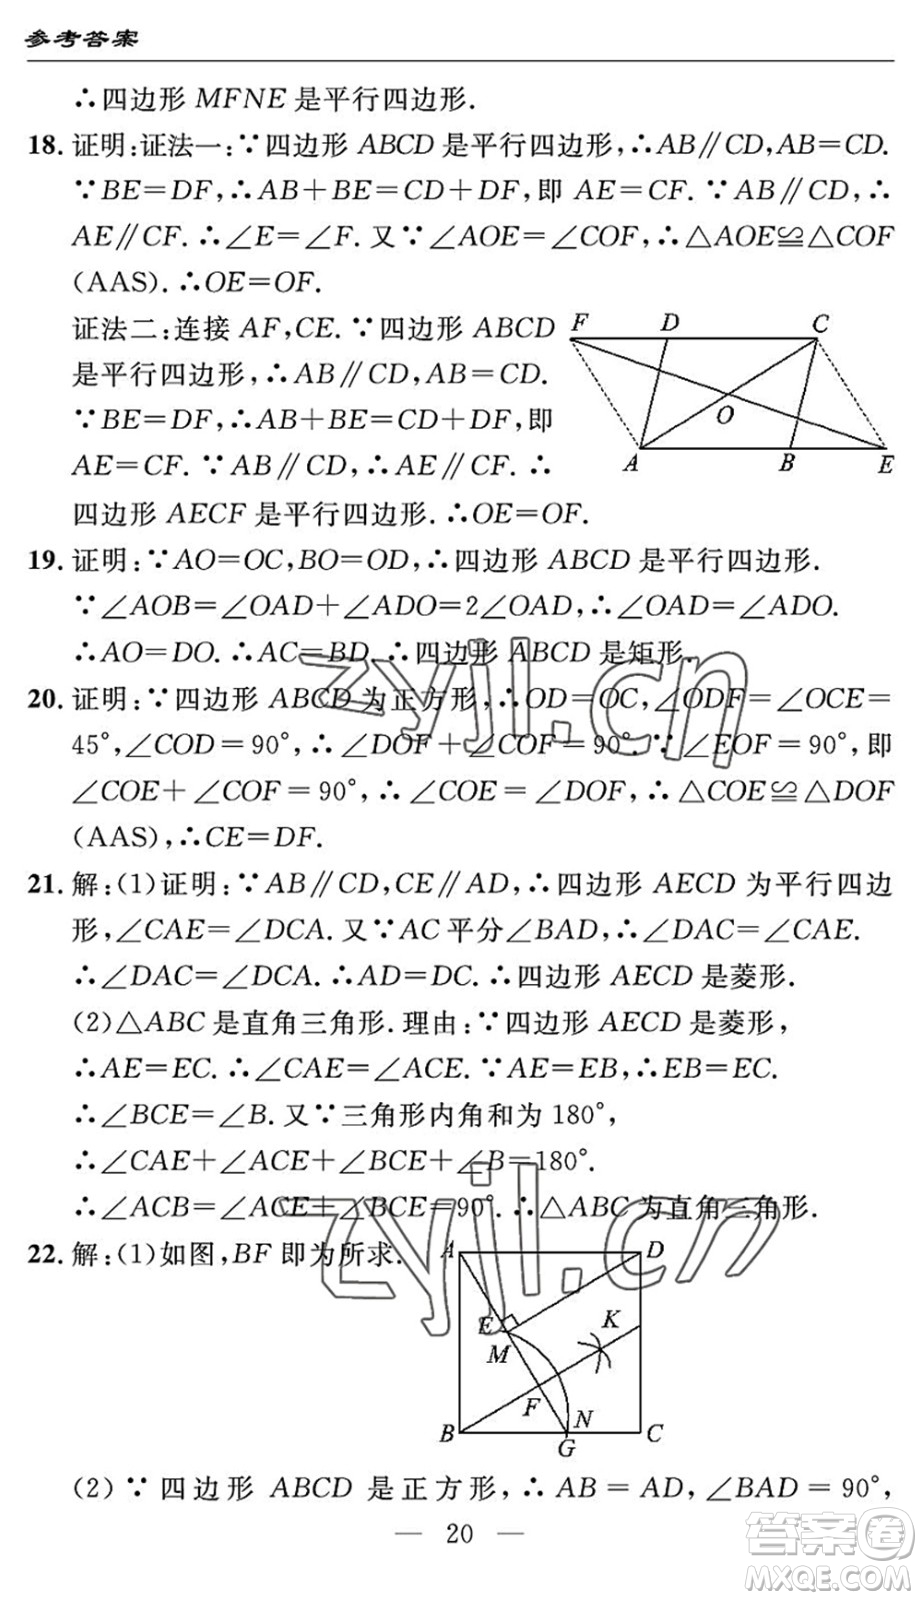 参考答案
∴四边形 MFNE 是平行四边形.
18. 证明:证法一:∵四边形 ABCD 是平行四边形,∴AB∥CD,AB=CD.
∵BE=DF,∴AB+BE=CD+DF,即 AE=CF. ∵AB∥CD,∴
AE∥CF. ∴∠E=∠F. 又∵∠AOE=∠COF,∴△AOE≌△COF
(AAS). ∴OE=OF.
证法二:连接 AF,CE. ∵四边形 ABCD
是平行四边形,∴AB∥CD,AB=CD.
∵BE=DF,∴AB+BE=CD+DF,即
AE=CF. ∵AB∥CD,∴AE∥CF. ∴
四边形 AECF 是平行四边形. ∴OE=OF.
F D C
O
A B E
19. 证明:∵AO=OC,BO=OD,∴四边形 ABCD 是平行四边形.
∵∠AOB=∠OAD+∠ADO=2∠OAD,∴∠OAD=∠ADO.
∴AO=DO. ∴AC=BD. ∴四边形 ABCD 是矩形.
20. 证明:∵四边形 ABCD 为正方形,∴OD=OC,∠ODF=∠OCE=
45°,∠COD=90°,∴∠DOF+∠COF=90°. ∵∠EOF=90°,即
∠COE+∠COF=90°,∴∠COE=∠DOF,∴△COE≌△DOF
(AAS),∴CE=DF.
21. 解:(1)证明:∵AB∥CD,CE∥AD,∴四边形 AECD 为平行四边
形,∠CAE=∠DCA. 又∵AC 平分∠BAD,∴∠DAC=∠CAE.
∴∠DAC=∠DCA. ∴AD=DC. ∴四边形 AECD 是菱形.
(2)△ABC 是直角三角形. 理由:∵四边形 AECD 是菱形,
∴AE=EC. ∴∠CAE=∠ACE. ∵AE=EB,∴EB=EC.
∴∠BCE=∠B. 又∵三角形内角和为 180°,
∴∠CAE+∠ACE+∠BCE+∠B=180°.
∴∠ACB=∠ACE+∠BCE=90°. ∴△ABC 为直角三角形.
22. 解:(1)如图,BF 即为所求.
A D
E K
M
F N
B G C
(2) ∵ 四边形 ABCD 是正方形,∴ AB = AD,∠BAD = 90°,
— 20 —
zyjl.cn
zyjl.cn
答案圈
MXQE.COM